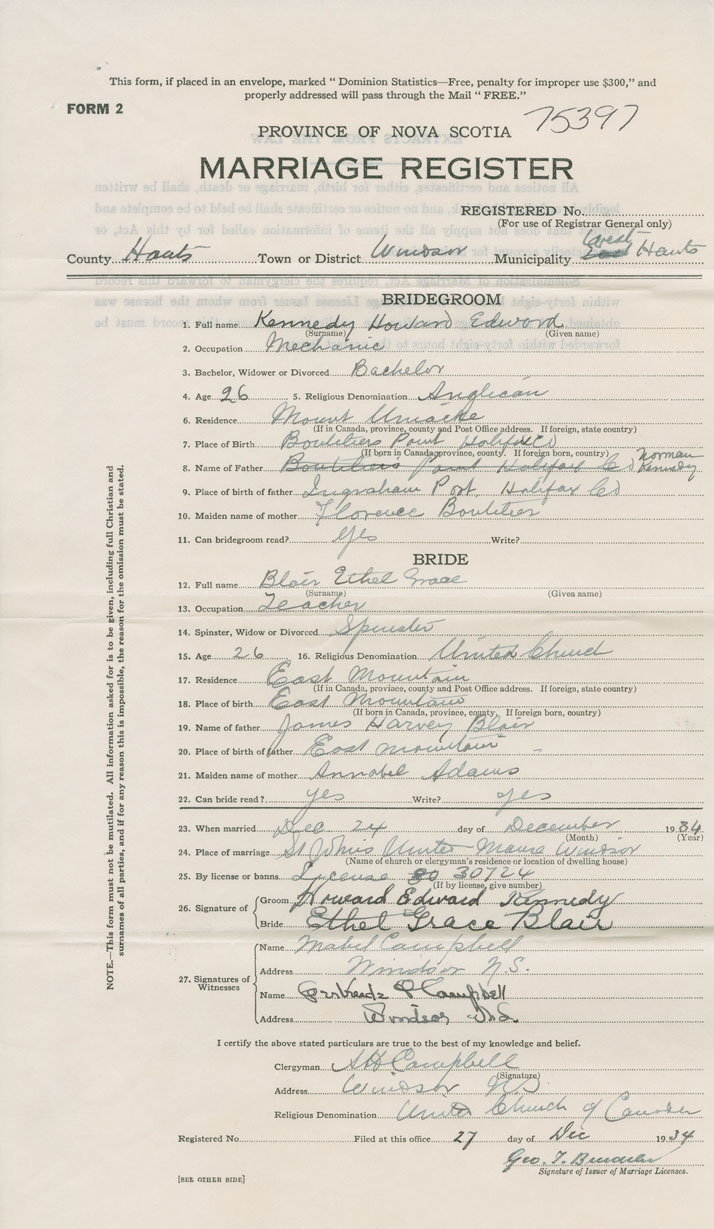 This form, if placed in an envelope, marked “ Dominion Statistics—Free, penalty for improper use $300,” and
properly addressed will pass through the Mail “ FREE.”
FORM 2
75397
PROVINCE OF NOVA SCOTIA
MARRIAGE REGISTER
REGISTERED No.
(For use of Registrar General only)
County Hants Town or District Windsor Municipality West Hants
BRIDEGROOM
1. Full name Kennedy Howard Edward
(Surname) (Given name)
2. Occupation Mechanic
3. Bachelor, Widower or Divorced Bachelor
4. Age 26 5. Religious Denomination Anglican
6. Residence Mount Uniacke
(If in Canada, province, county and Post Office address. If foreign, state country)
7. Place of Birth Boutiliers Point Halifax Co
(If born in Canada, province, county. If foreign born, country)
8. Name of Father Boutiliers Point Halifax Co Norman Kennedy
9. Place of birth of father Ingraham Port, Halifax Co
10. Maiden name of mother Florence Boutilier
11. Can bridegroom read? Yes Write?
BRIDE
12. Full name Blair Ethel Grace
(Surname) (Given name)
13. Occupation Teacher
14. Spinster, Widow or Divorced Spinster
15. Age 26 16. Religious Denomination United Church
17. Residence East Mountain
(If in Canada, province, county and Post Office address. If foreign, state country)
18. Place of birth East Mountain
(If born in Canada, province, county. If foreign born, country)
19. Name of father James Harvey Blair
20. Place of birth of father East mountain
21. Maiden name of mother Annabel Adams
22. Can bride read? yes Write? yes
23. When married Dec 24 day of December 1934
(Month) (Year)
24. Place of marriage St Johns United Manse Windsor
(Name of church or clergyman's residence or location of dwelling house)
25. By license or banns License 30724
(If by license, give number)
26. Signature of
Groom Howard Edward Kennedy
Bride Ethel Grace Blair
27. Signatures of Witnesses
Name Mabel Campbell
Address Windsor N.S.
Name Gertrude P Campbell
Address Windsor N.S.
I certify the above stated particulars are true to the best of my knowledge and belief.
Clergyman Campbell
(Signature)
Address Windsor NS
Religious Denomination United Church of Canada
Registered No. Filed at this office 27 day of Dec 1934
Geo. T.
Signature of Issuer of Marriage Licenses.
[SEE OTHER SIDE]
NOTE.—This form must not be mutilated. All information asked for is to be given, including full Christian and
surnames of all parties, and if for any reason this is impossible, the reason for the omission must be stated.